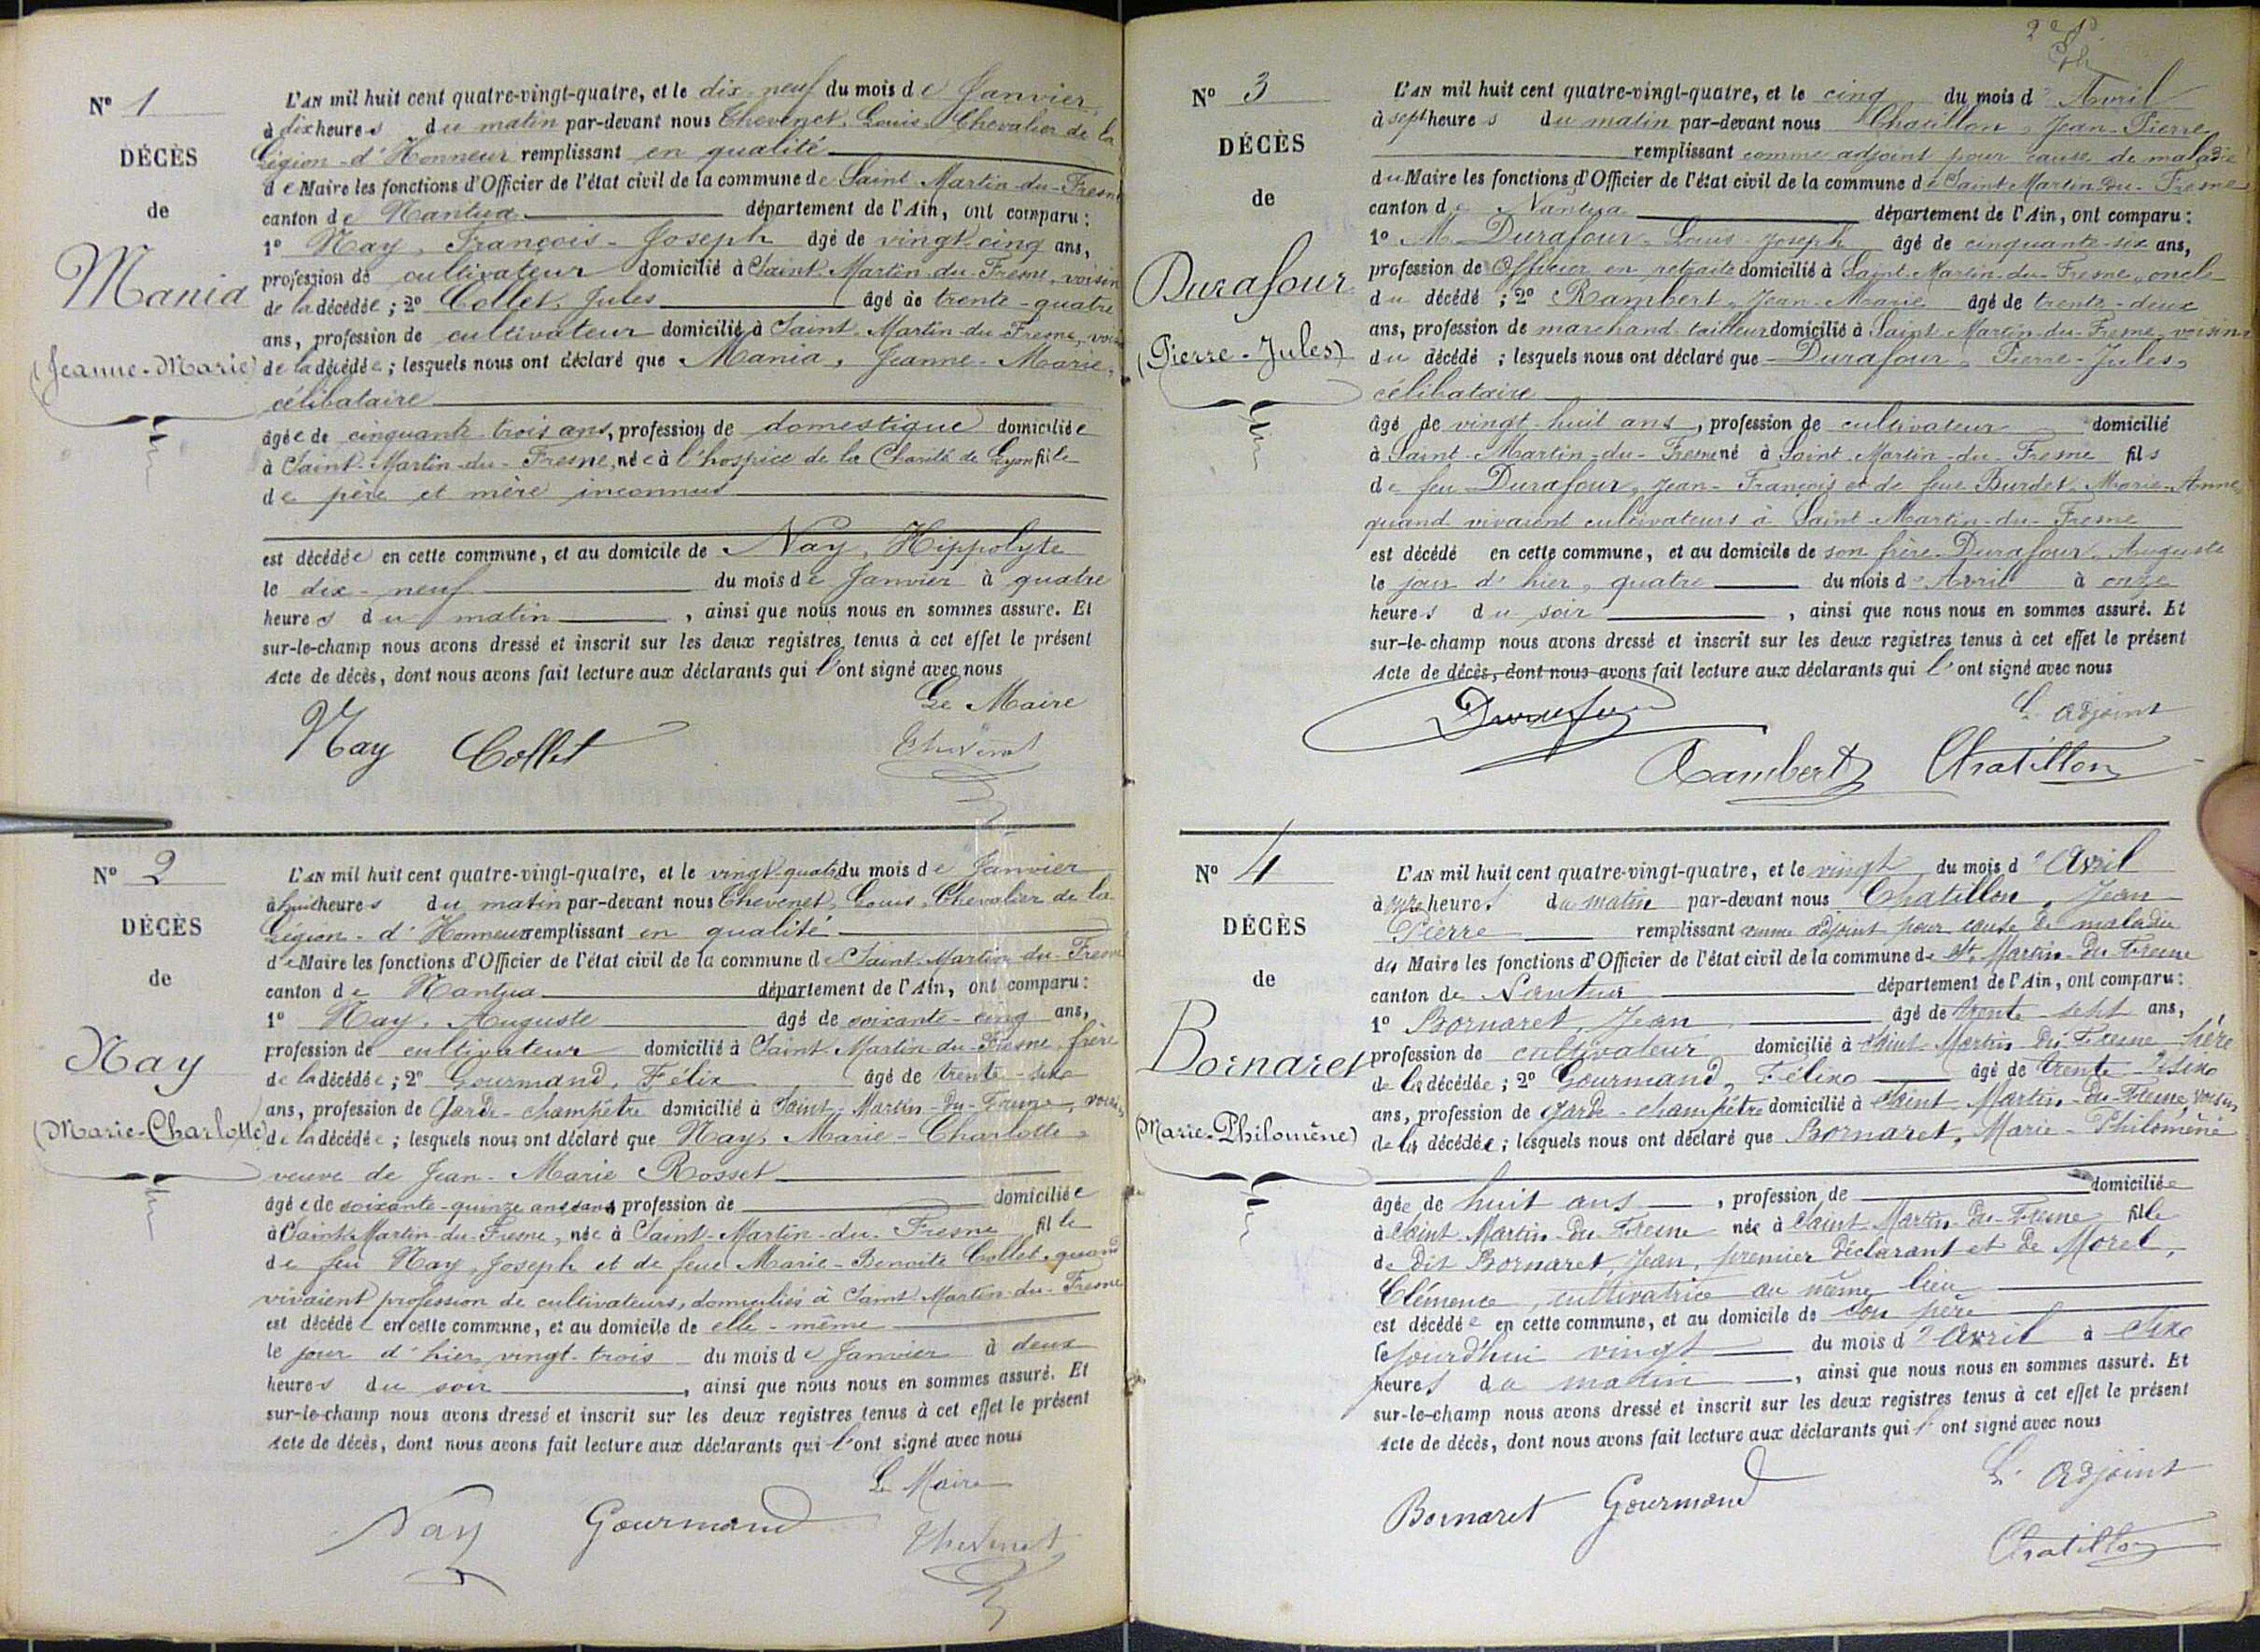 Nº 1
DÉCÈS
de
Mania
(Jeanne-Marie)
L'AN mil huit cent quatre-vingt-quatre, et le dix-neuf du mois de Janvier
à dix heures du matin par-devant nous Chevenet, Louis, Chevalier de la
Légion-d'Honneur remplissant en qualité
de Maire les fonctions d'Officier de l'état civil de la commune de Saint-Martin-du-Fresne
canton de Nantua département de l'Ain, ont comparu :
1º Nay, François-Joseph âgé de vingt-cinq ans,
profession de cultivateur domicilié à Saint-Martin-du-Fresne, voisin
de la décédée ; 2º Collet, Jules âgé de trente-quatre
ans, profession de cultivateur domicilié à Saint-Martin-du-Fresne, voisin
de la décédée ; lesquels nous ont déclaré que Mania, Jeanne-Marie,
célibataire
âgée de cinquante-trois ans, profession de domestique domiciliée
à Saint-Martin-du-Fresne, née à l'hospice de la Charité de Lyon fille
de père et mère inconnus
est décédée en cette commune, et au domicile de Nay, Hippolyte
le dix-neuf du mois de Janvier à quatre
heures du matin, ainsi que nous nous en sommes assuré. Et
sur-le-champ nous avons dressé et inscrit sur les deux registres tenus à cet effet le présent
Acte de décès, dont nous avons fait lecture aux déclarants qui l'ont signé avec nous
Le Maire
Nay Collet Chevenet
Nº 2
DÉCÈS
de
Nay
(Marie-Charlotte)
L'AN mil huit cent quatre-vingt-quatre, et le vingt-quatre du mois de Janvier
à huit heures du matin par-devant nous Chevenet, Louis, Chevalier de la
Légion-d'Honneur remplissant en qualité
de Maire les fonctions d'Officier de l'état civil de la commune de Saint-Martin-du-Fresne
canton de Nantua département de l'Ain, ont comparu :
1º Nay, Auguste âgé de soixante-cinq ans,
profession de cultivateur domicilié à Saint-Martin-du-Fresne, frère
de la décédée ; 2º Gourmand, Félix âgé de trente-six
ans, profession de Garde-champêtre domicilié à Saint-Martin-du-Fresne, voisin
de la décédée ; lesquels nous ont déclaré que Nay, Marie-Charlotte,
veuve de Jean-Marie Rosset
âgée de soixante-quinze ans, sans profession de domiciliée
à Saint-Martin-du-Fresne, née à Saint-Martin-du-Fresne fille
de feu Nay, Joseph et de feue Marie-Benoite Collet, quand
vivaient profession de cultivateurs, domiciliés à Saint-Martin-du-Fresne
est décédée en cette commune, et au domicile de elle-même
le jour d'hier, vingt-trois du mois de Janvier à deux
heures du soir, ainsi que nous nous en sommes assuré. Et
sur-le-champ nous avons dressé et inscrit sur les deux registres tenus à cet effet le présent
Acte de décès, dont nous avons fait lecture aux déclarants qui l'ont signé avec nous
Le Maire
Nay Gourmand Chevenet
Nº 3
DÉCÈS
de
Durafour
(Pierre-Jules)
L'AN mil huit cent quatre-vingt-quatre, et le cinq du mois d'Avril
à sept heures du matin par-devant nous Chatillon, Jean-Pierre
remplissant comme adjoint pour cause de maladie
du Maire les fonctions d'Officier de l'état civil de la commune de Saint-Martin-du-Fresne
canton de Nantua département de l'Ain, ont comparu :
1º M. Durafour, Louis-Joseph âgé de cinquante-six ans,
profession de Officier en retraite domicilié à Saint-Martin-du-Fresne, oncle
du décédé ; 2º Rambert, Jean-Marie âgé de trente-deux
ans, profession de marchand tailleur domicilié à Saint-Martin-du-Fresne, voisin
du décédé ; lesquels nous ont déclaré que Durafour, Pierre-Jules,
célibataire
âgé de vingt-huit ans, profession de cultivateur domicilié
à Saint-Martin-du-Fresne né à Saint-Martin-du-Fresne fils
de feu Durafour, Jean-François et de feue Burdet, Marie-Anne,
quand vivaient cultivateurs à Saint-Martin-du-Fresne
est décédé en cette commune, et au domicile de son frère Durafour, Auguste
le jour d'hier, quatre du mois d'Avril à onze
heures du soir, ainsi que nous nous en sommes assuré. Et
sur-le-champ nous avons dressé et inscrit sur les deux registres tenus à cet effet le présent
Acte de décès, dont nous avons fait lecture aux déclarants qui l'ont signé avec nous
L'Adjoint
Durafour
Rambert Chatillon
Nº 4
DÉCÈS
de
Bornaret
(Marie-Philomène)
L'AN mil huit cent quatre-vingt-quatre, et le vingt du mois d'Avril
à onze heures du matin par-devant nous Chatillon, Jean
Pierre remplissant comme adjoint pour cause de maladie
du Maire les fonctions d'Officier de l'état civil de la commune de St Martin-du-Fresne
canton de Nantua département de l'Ain, ont comparu :
1º Bornaret, Jean âgé de trente-sept ans,
profession de cultivateur domicilié à Saint-Martin-du-Fresne père
de la décédée ; 2º Gourmand, Félix âgé de trente-six
ans, profession de garde-champêtre domicilié à Saint-Martin-du-Fresne, voisin
de la décédée ; lesquels nous ont déclaré que Bornaret, Marie-Philomène
âgée de huit ans, profession de domiciliée
à Saint-Martin-du-Fresne née à Saint-Martin-du-Fresne fille
de dit Bornaret, Jean, premier déclarant et de Morel,
Clémence, cultivatrice au même lieu
est décédée en cette commune, et au domicile de son père
le jourd'hui vingt du mois d'Avril à six
heures du matin, ainsi que nous nous en sommes assuré. Et
sur-le-champ nous avons dressé et inscrit sur les deux registres tenus à cet effet le présent
Acte de décès, dont nous avons fait lecture aux déclarants qui l'ont signé avec nous
L'Adjoint
Bornaret Gourmand
Chatillon